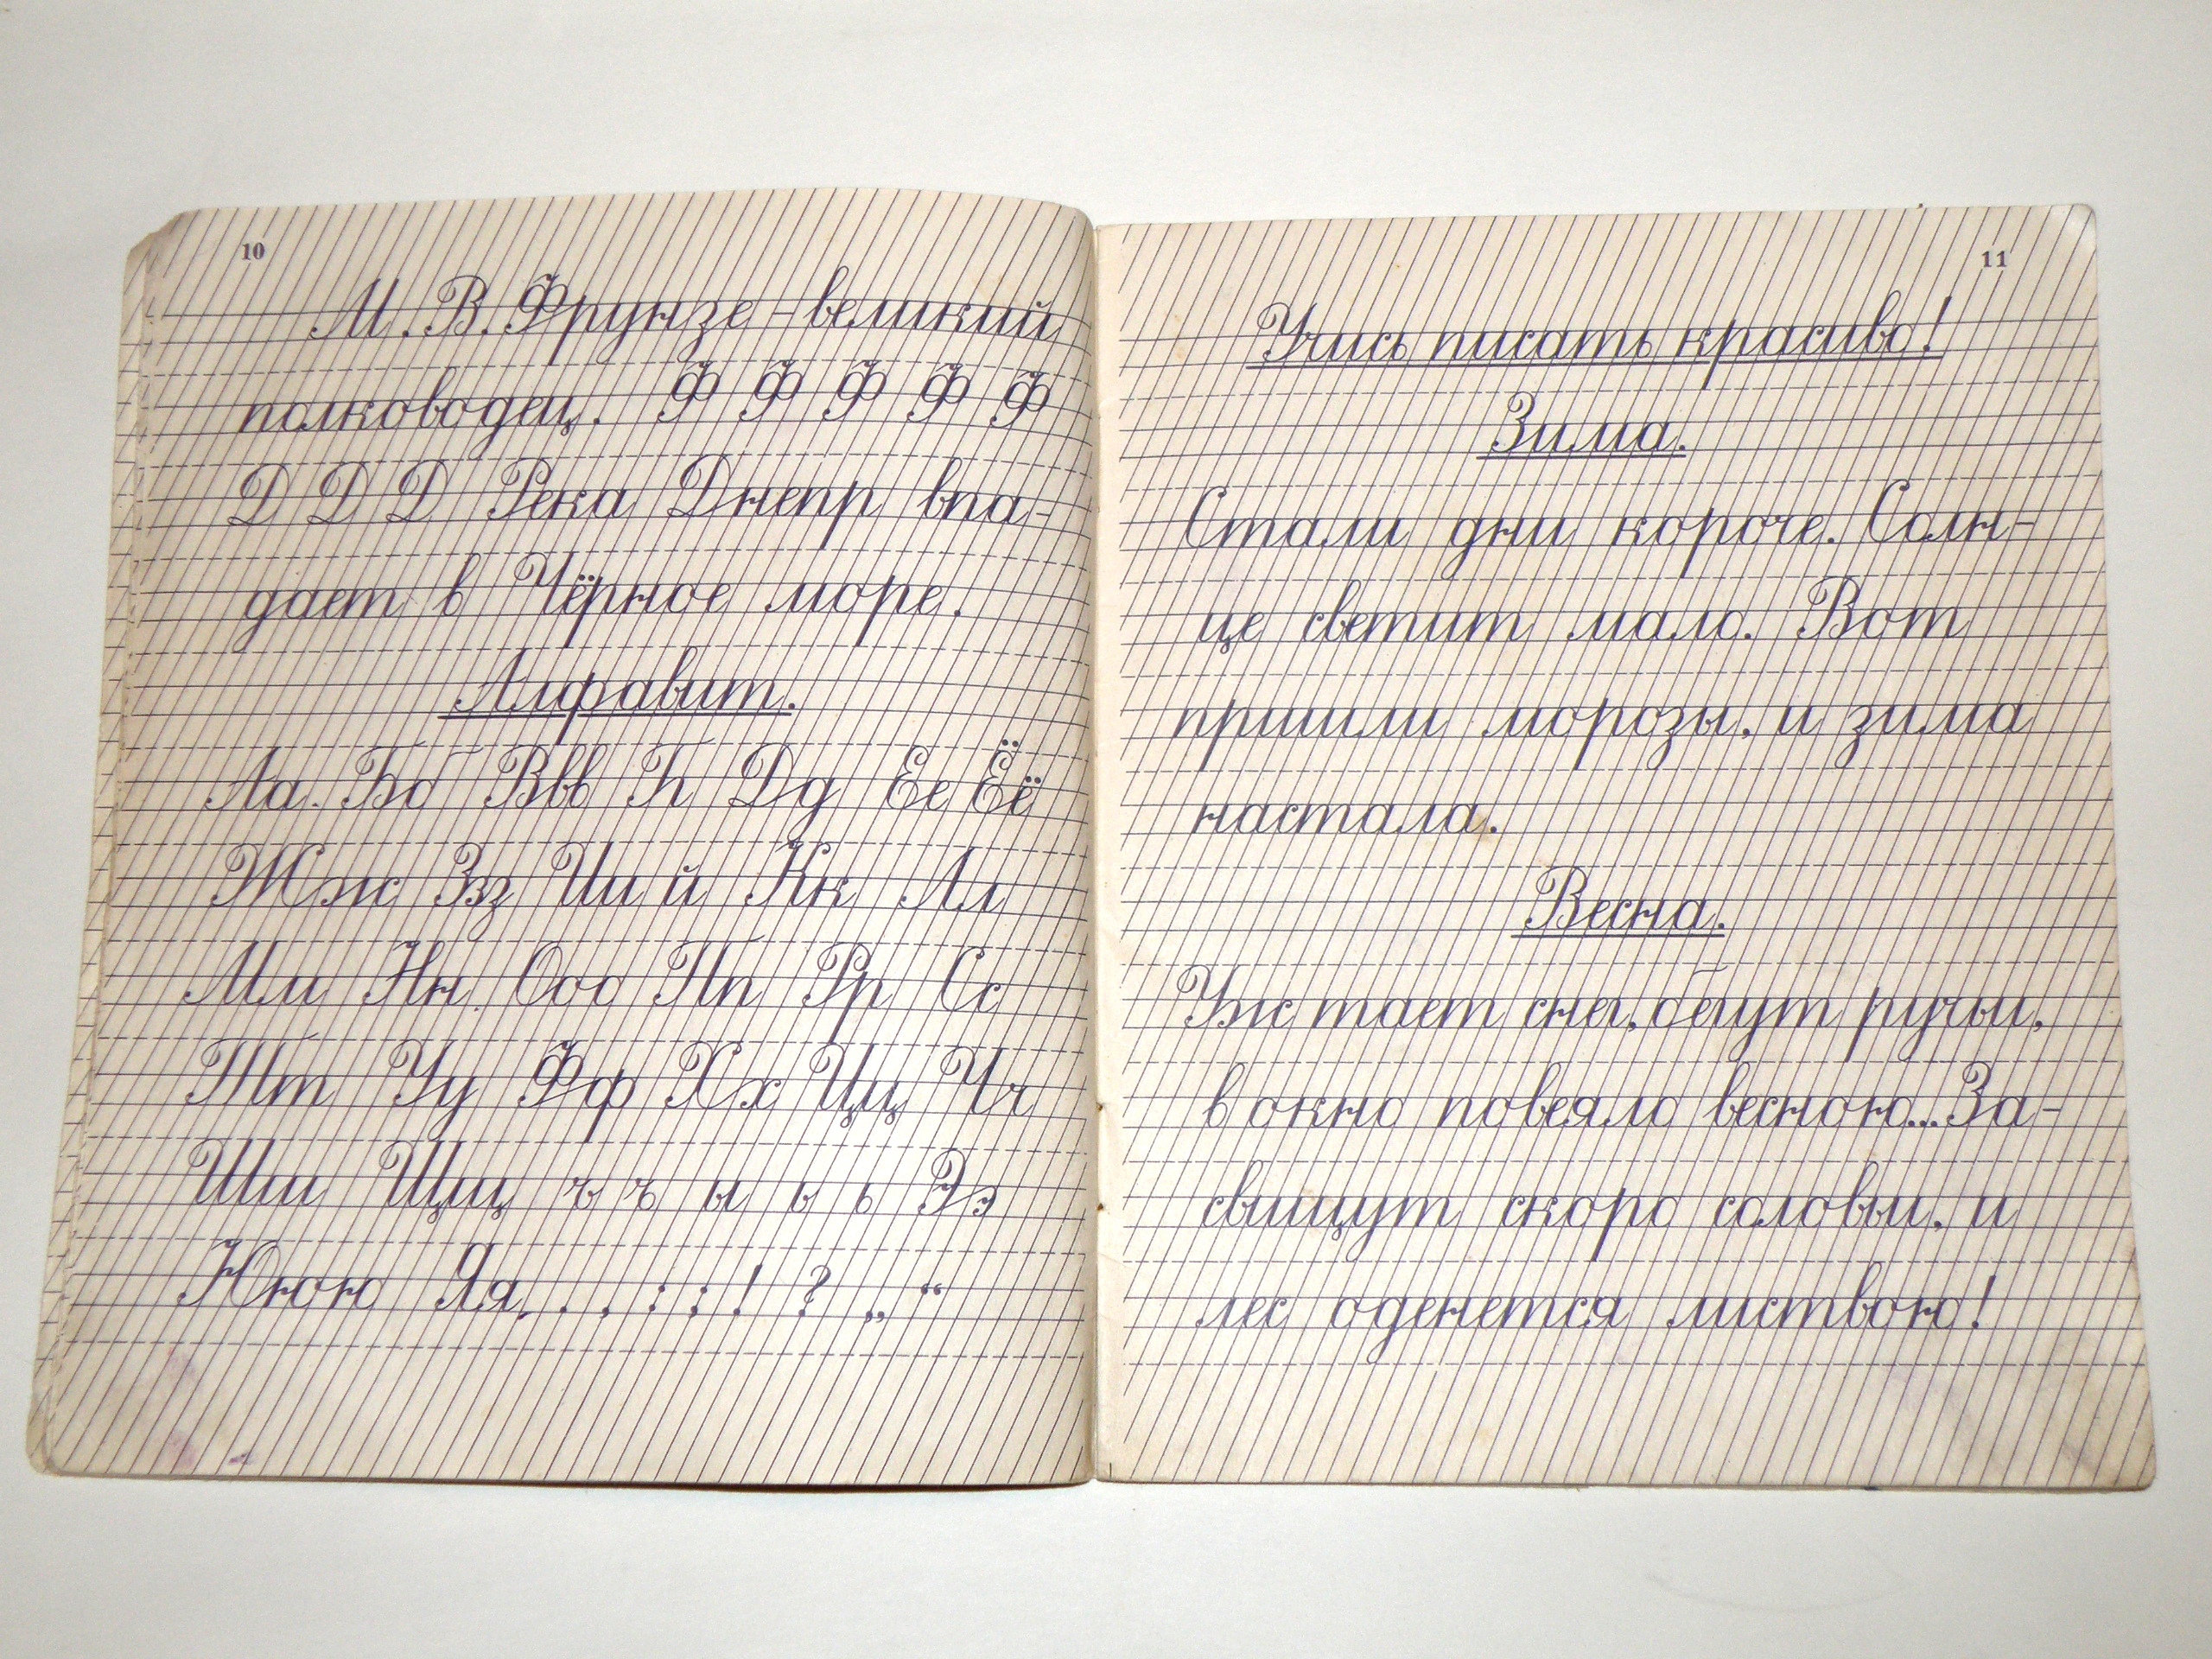 10
М. В. Фрунзе – великий
полководец. Ф Ф Ф Ф Ф
Д Д Д Река Днепр впа-
дает в Чёрное море.
Алфавит.
Аа. Бб Ввв Гг Дд Ее Ёё
Жж Ззз Ии й Кк Лл
Мм Нн Ооо Пп Рр Сс
Тт Уу Фф Хх Цц Чч
Шш Щщ ъ ъ ы ь ь Ээ
Ююю Яя. . , : ; ! ? „ “
11
Учись писать красиво!
Зима.
Стали дни короче. Солн-
це светит мало. Вот
пришли морозы, и зима
настала.
Весна.
Уж тает снег, бегут ручьи,
в окно повеяло весною... За-
свищут скоро соловьи, и
лес оденется листвою!